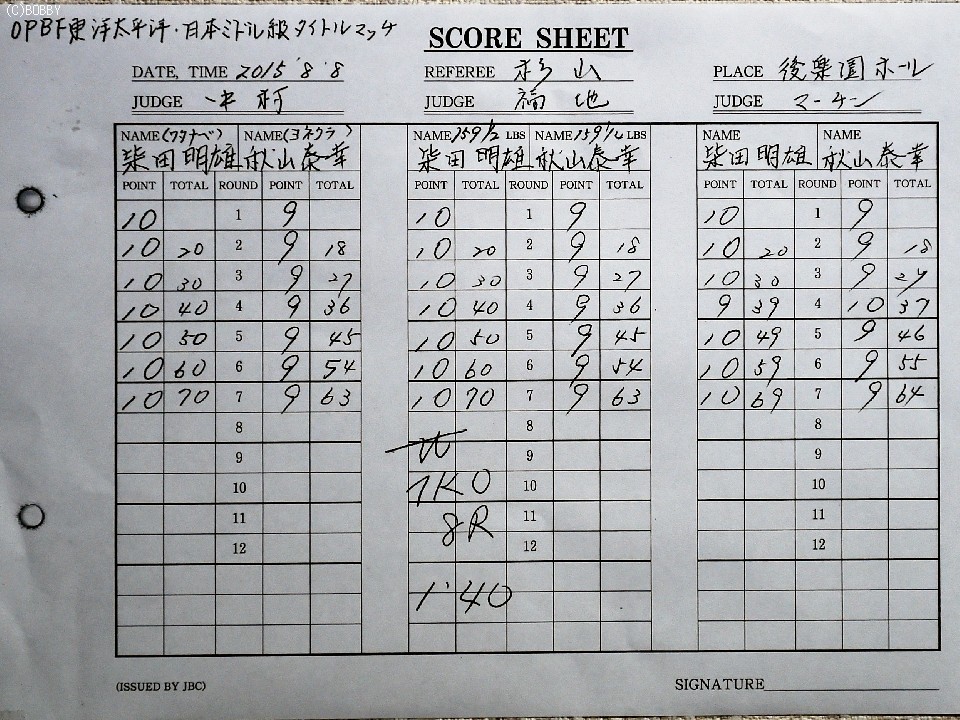 (C)BOBBY
OPBF東洋太平洋・日本ミドル級タイトルマッチ
SCORE SHEET
DATE, TIME 2015 8 8 REFEREE 杉山 PLACE 後楽園ホール
JUDGE 中村 JUDGE 福地 JUDGE マーチン
NAME(ワタナベ) NAME(ヨネクラ) NAME 159 1/2 LBS NAME 159 1/4 LBS NAME NAME
柴田明雄 秋山泰幸 柴田明雄 秋山泰幸 柴田明雄 秋山泰幸
POINT TOTAL ROUND POINT TOTAL POINT TOTAL ROUND POINT TOTAL POINT TOTAL ROUND POINT TOTAL
10 1 9 10 1 9 10 1 9
10 20 2 9 18 10 20 2 9 18 10 20 2 9 18
10 30 3 9 27 10 30 3 9 27 10 30 3 9 27
10 40 4 9 36 10 40 4 9 36 9 39 4 10 37
10 50 5 9 45 10 50 5 9 45 10 49 5 9 46
10 60 6 9 54 10 60 6 9 54 10 59 6 9 55
10 70 7 9 63 10 70 7 9 63 10 69 7 9 64
8 8 8
9 9 9
10 TKO 10 10
11 8R 11 11
12 12 12
1'40
(ISSUED BY JBC) SIGNATURE